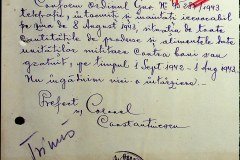 Conform Ordinul Gur. No 1943
telefonați, întocmiți și înaintați irevocabil
pe ziua de 8 August 1943, situația de toate
cantitățile de produse și alimentele date
unităților militare contra bani sau
gratuit, pe timpul 1 Sept 1942 - 1 Aug 1943.
Nu îngăduim nici o întârziere.
Prefect
Colonel
Constantinescu
Trimis